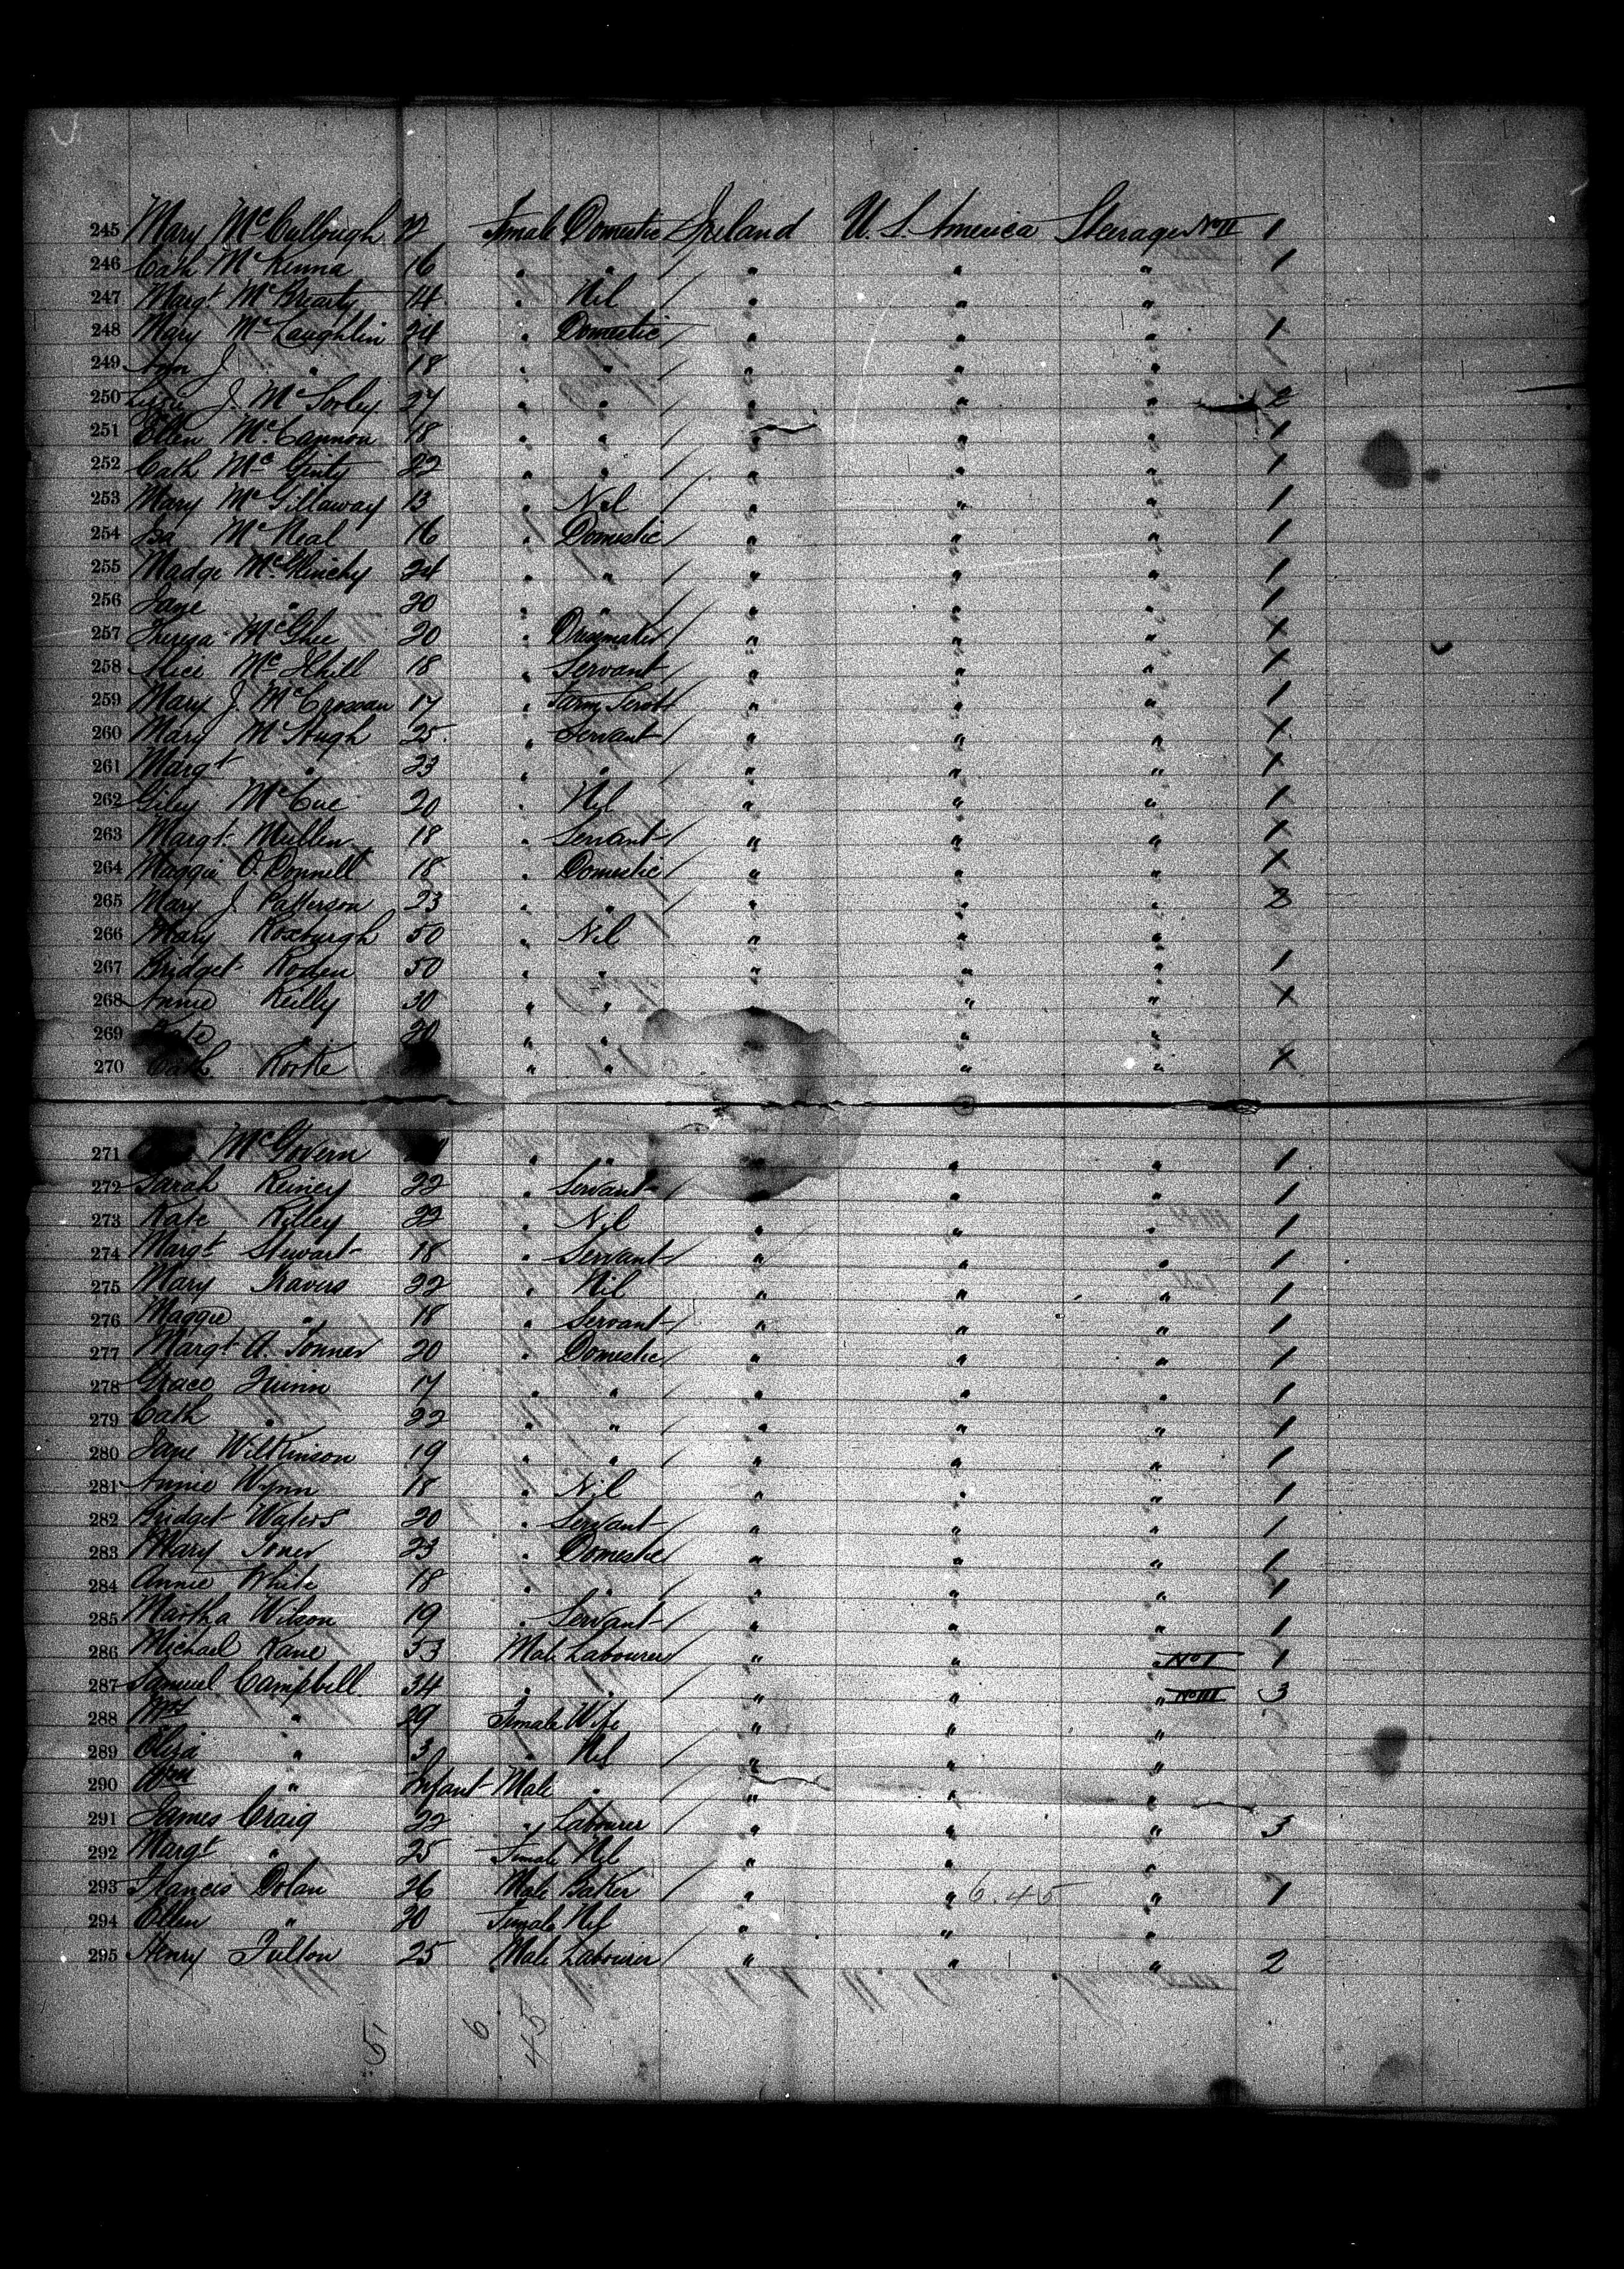 245 Mary McCullough Female Domestic Ireland U. S. America Stearage No II 1
246 Cath McKenna 16 " " " " " 1
247 Margt 14 " Nil " " "
248 Mary McLaughlin 24 " Domestic " " " 1
249 Ann J. " 18 " " " " "
250 Lizzie J. McSorley 27 " " " " " 2
251 Ellen McCannon 18 " " " " " 1
252 Cath McGinty 22 " " " " " 1
253 Mary McGillaway 13 " Nil " " " 1
254 McNeal 16 " Domestic " " " 1
255 Madge McGlinchy 24 " " " " " 1
256 Jane " 20 " " " " " 1
257 McGhee 20 " Dressmaker " " " 1
258 Alice 18 " Servant " " " 1
259 Mary J. McCrossan 17 " Farm Servt " " " 1
260 Mary McHugh 25 " Servant " " " 1
261 Margt " 23 " " " " " 1
262 McCue 20 " Nil " " " 1
263 Margt Mullen 18 " Servant " " " 1
264 Maggie O.Donnell 18 " Domestic " " " 1
265 Mary J Patterson 23 " " " " " 3
266 Mary Roxburgh 50 " Nil " " "
267 Bridget Roden 50 " " " " " 1
268 Annie Reilly 30 " " " " " 1
269 Kate " 20 " " " "
270 Cath Rorke " " " " 1
271 McGovern " " " " 1
272 Sarah 22 " Servant " " 1
273 Kate Rilley 22 " Nil " " " 1
274 Margt Stewart 18 " Servant " " " 1
275 Mary Travers 22 " Nil " " " 1
276 Maggie " 18 " Servant " " " 1
277 Margt A. Tonner 20 " Domestic " " " 1
278 Grace Quinn 17 " " " " " 1
279 Cath " 22 " " " " " 1
280 Jane Wilkinson 19 " " " " " 1
281 Annie Wynn 18 " Nil " " " 1
282 Bridget Waters 20 " Servant " " " 1
283 Mary Toner 23 " Domestic " " " 1
284 Annie White 18 " " " " " 1
285 Martha Wilson 19 " Servant " " " 1
286 Michael Kane 53 Male Labourer " " " No I 1
287 Samuel Campbell 34 " " " " " No III 3
288 Mrs " 29 Female Wife " " "
289 Eliza " 3 " Nil " " "
290 Wm " Infant Male " " " "
291 James Craig 22 " Labourer " " " 3
292 Margt " 25 Female Nil " " "
293 Francis Dolan 26 Male Baker " " 6.45 " 1
294 Ellen " 20 Female Nil " " "
295 Henry Fulton 25 Male Labourer " " " 2
51 6 45